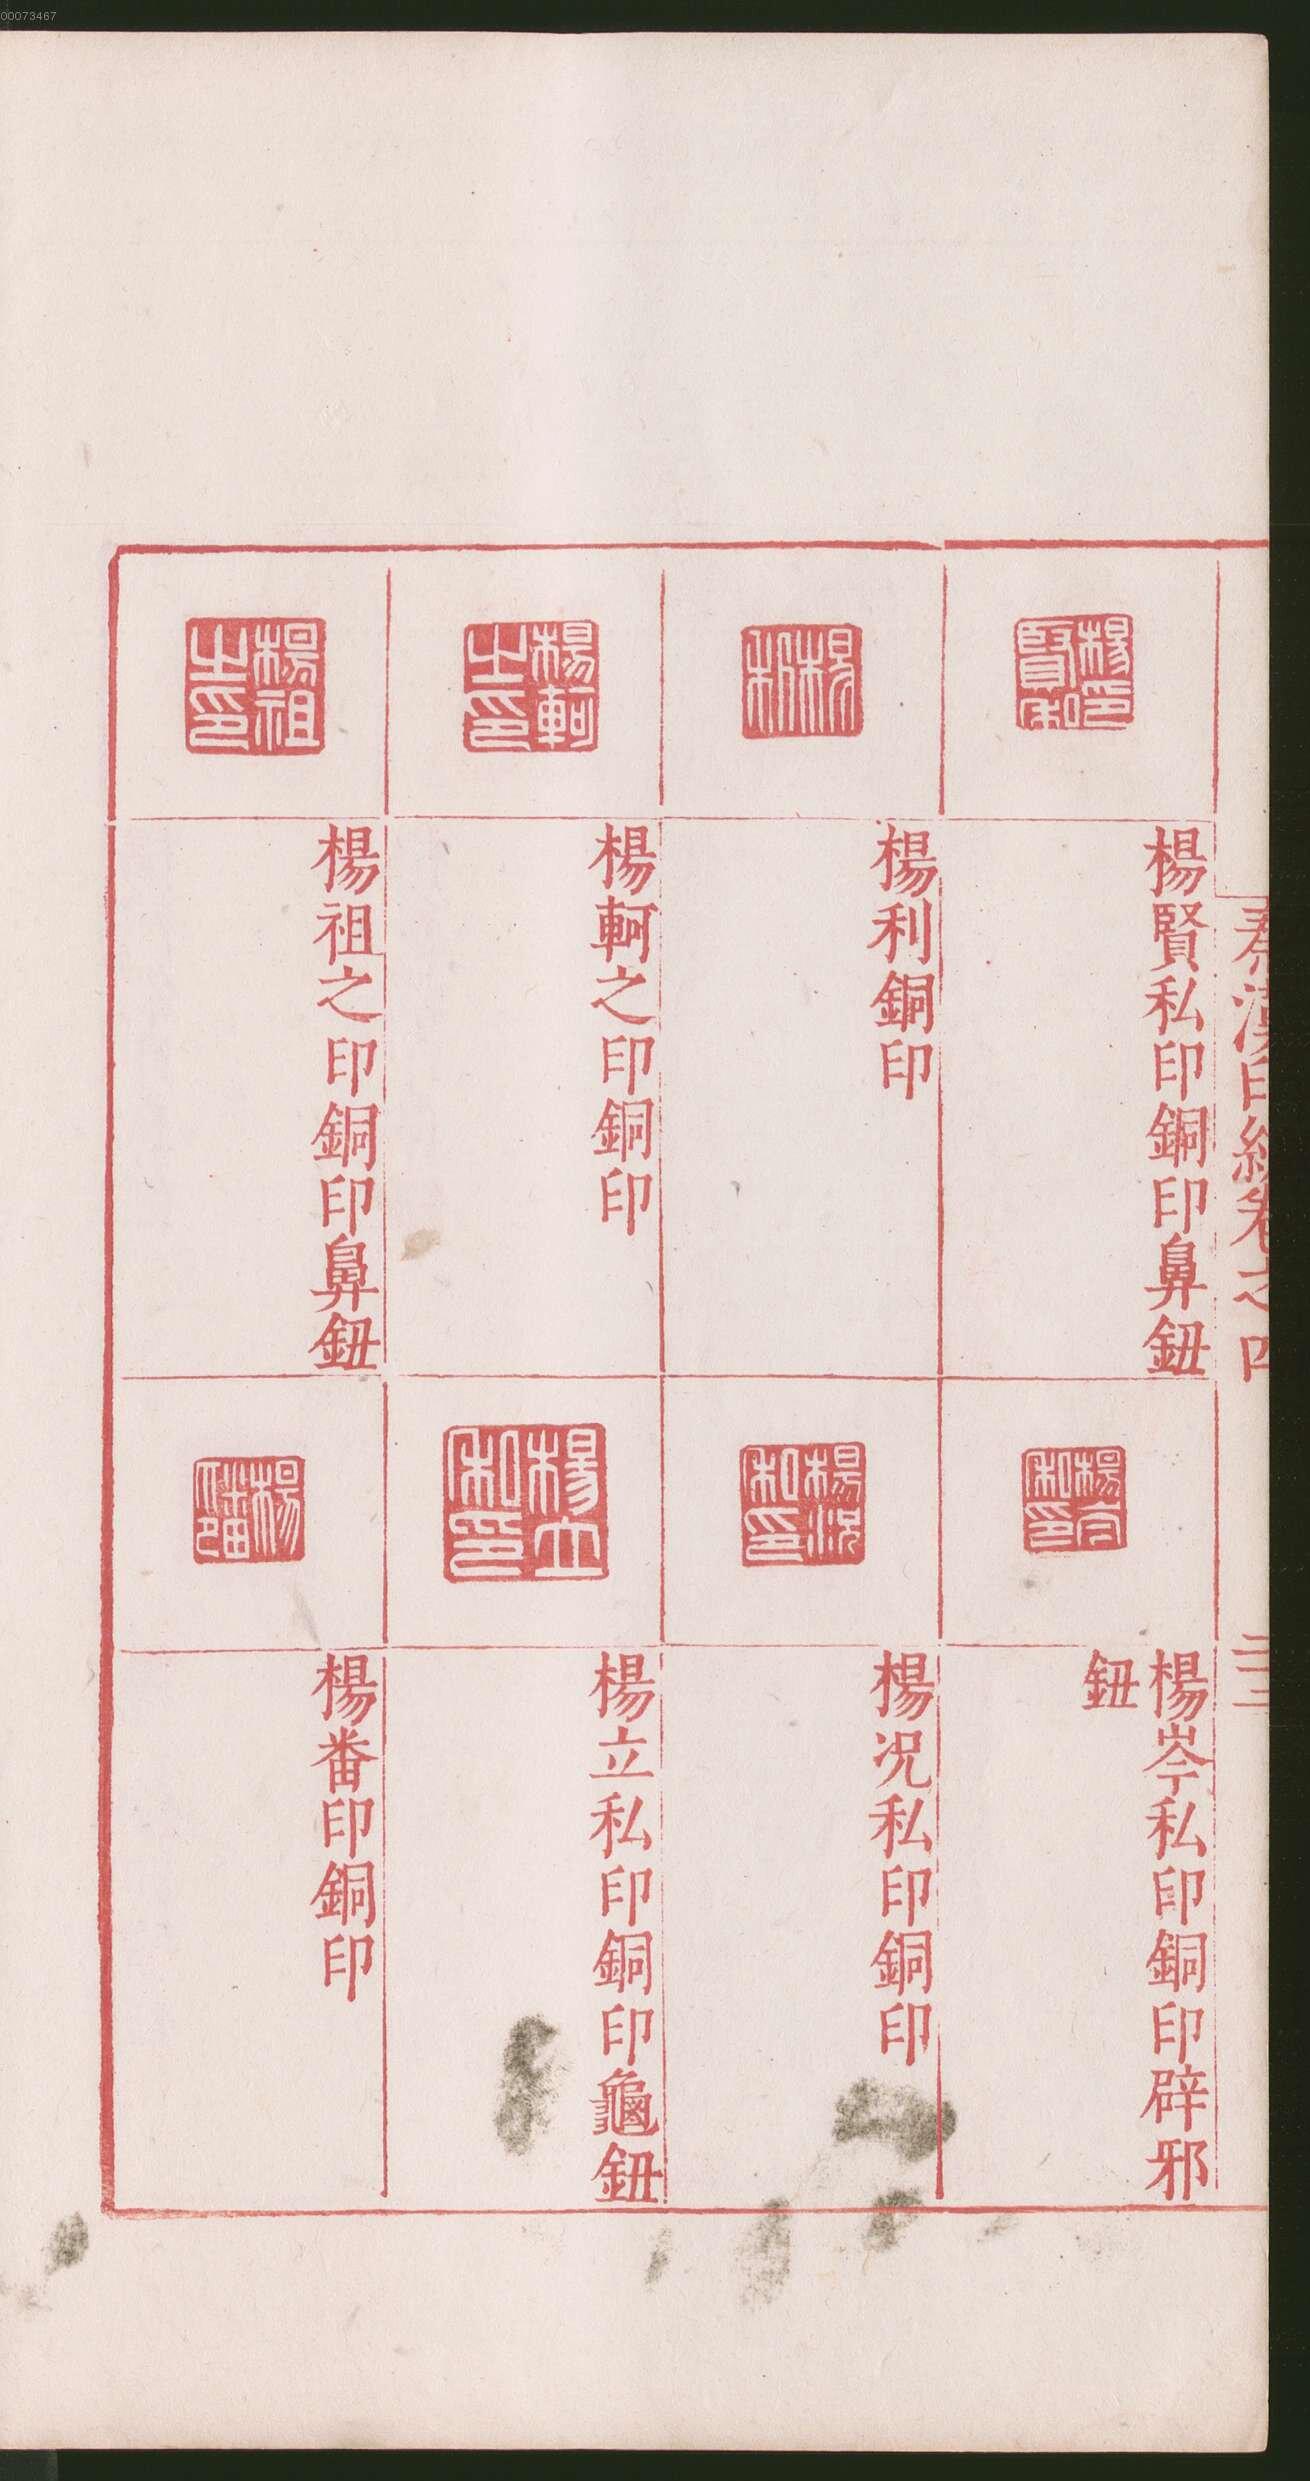 00073467
秦漢印統卷之四
二十三
楊賢私印
楊賢私印銅印鼻鈕
楊利
楊利銅印
楊軻之印
楊軻之印銅印
楊祖之印
楊祖之印銅印鼻鈕
楊岑私印
楊岑私印銅印辟邪
鈕
楊况私印
楊况私印銅印
楊立私印
楊立私印銅印龜鈕
楊番印
楊番印銅印